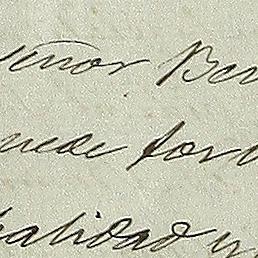 eñor Ber
uede for
palidad y